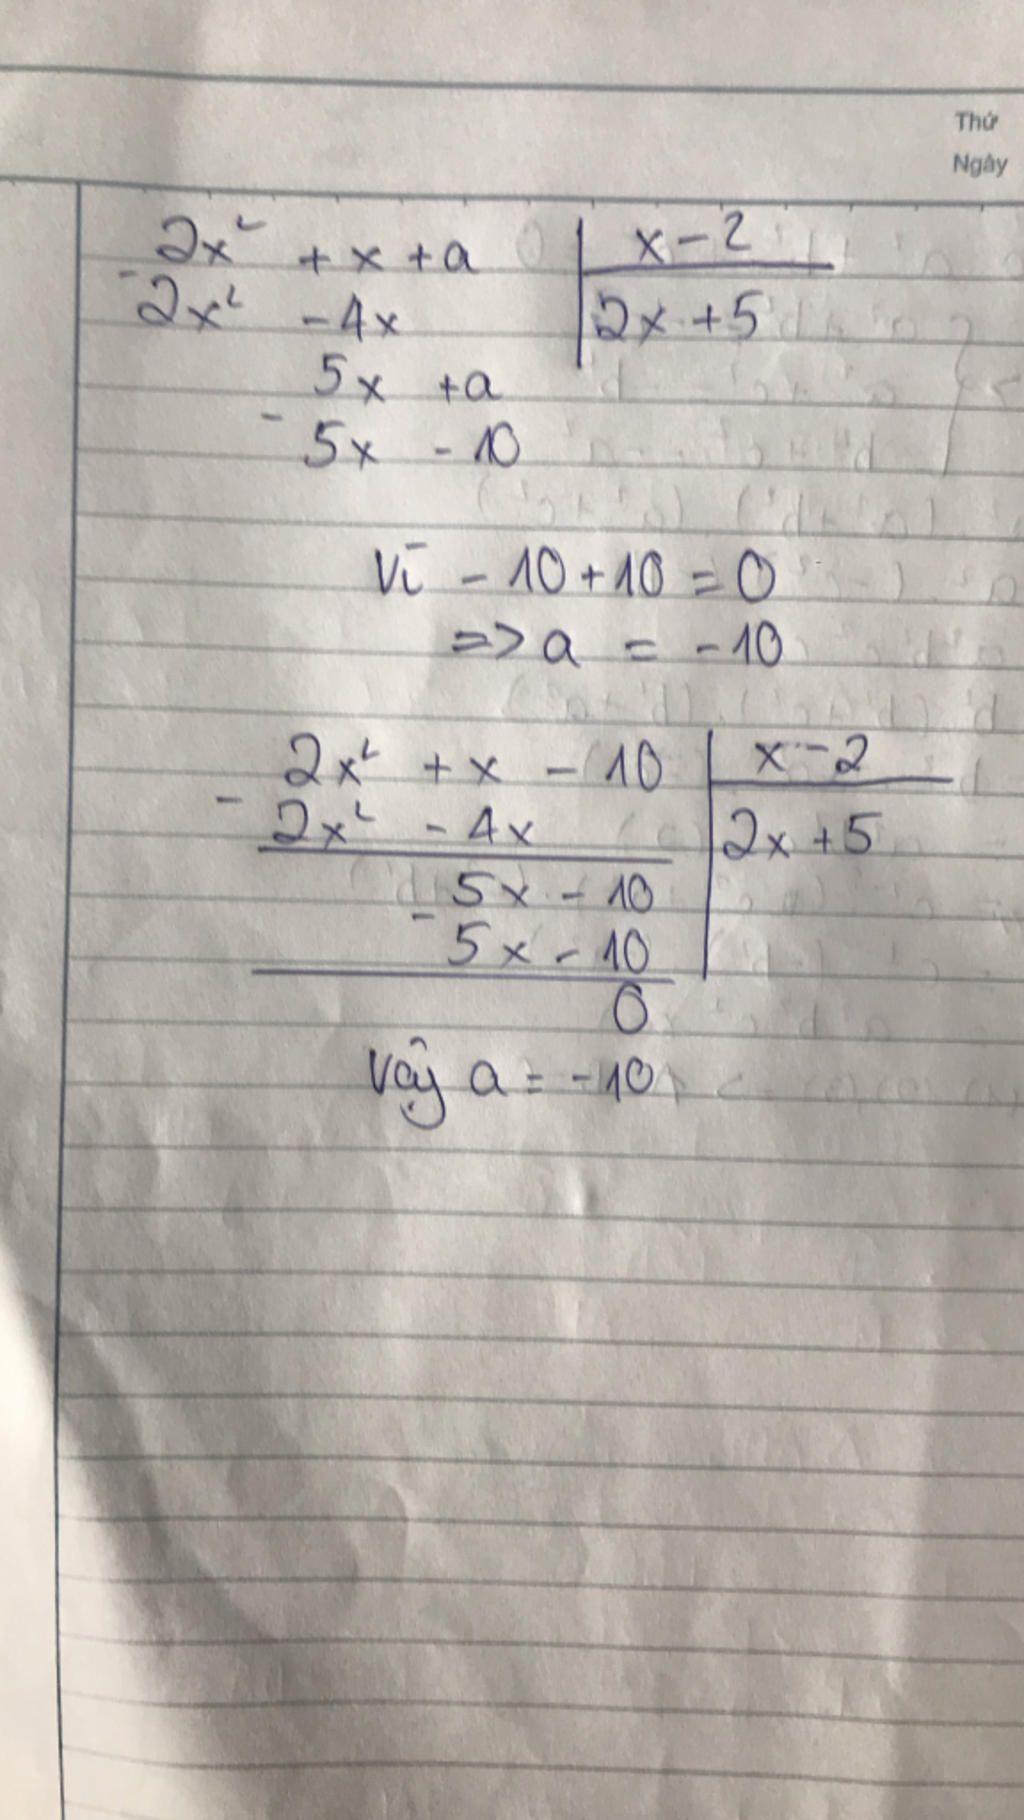 Thứ
Ngày
2x² + x + a | x - 2
- 2x² - 4x | 2x + 5
5x + a
- 5x - 10
Vì - 10 + 10 = 0
=> a = - 10
2x² + x - 10 | x - 2
- 2x² - 4x | 2x + 5
5x - 10
- 5x - 10
0
Vậy a = - 10